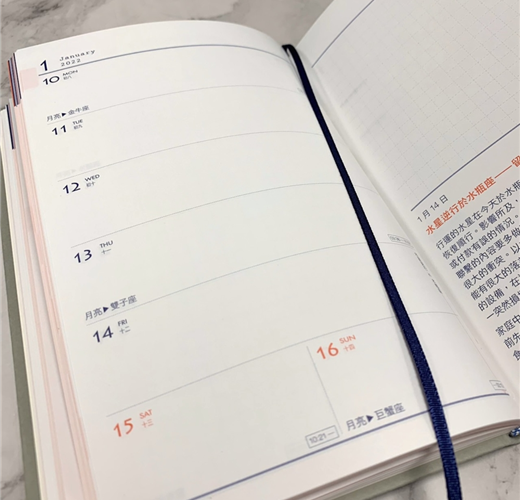 1 January
2022
10 MON
初八
月亮▶金牛座
11 TUE
初九
12 WED
初十
13 THU
十一
月亮▶雙子座
14 FRI
十二
15 SAT
十三
16 SUN
十四
10:21
月亮▶巨蟹座
1月14日
水星逆行於水瓶座——留
行運的水星在今天於水瓶
恢復順行。影響所及，
或付款有誤的情況。
聯繫的內容要多做
很大的衝突。以
能有很大的落
的設備，在
一突然損
家庭中
前先
食